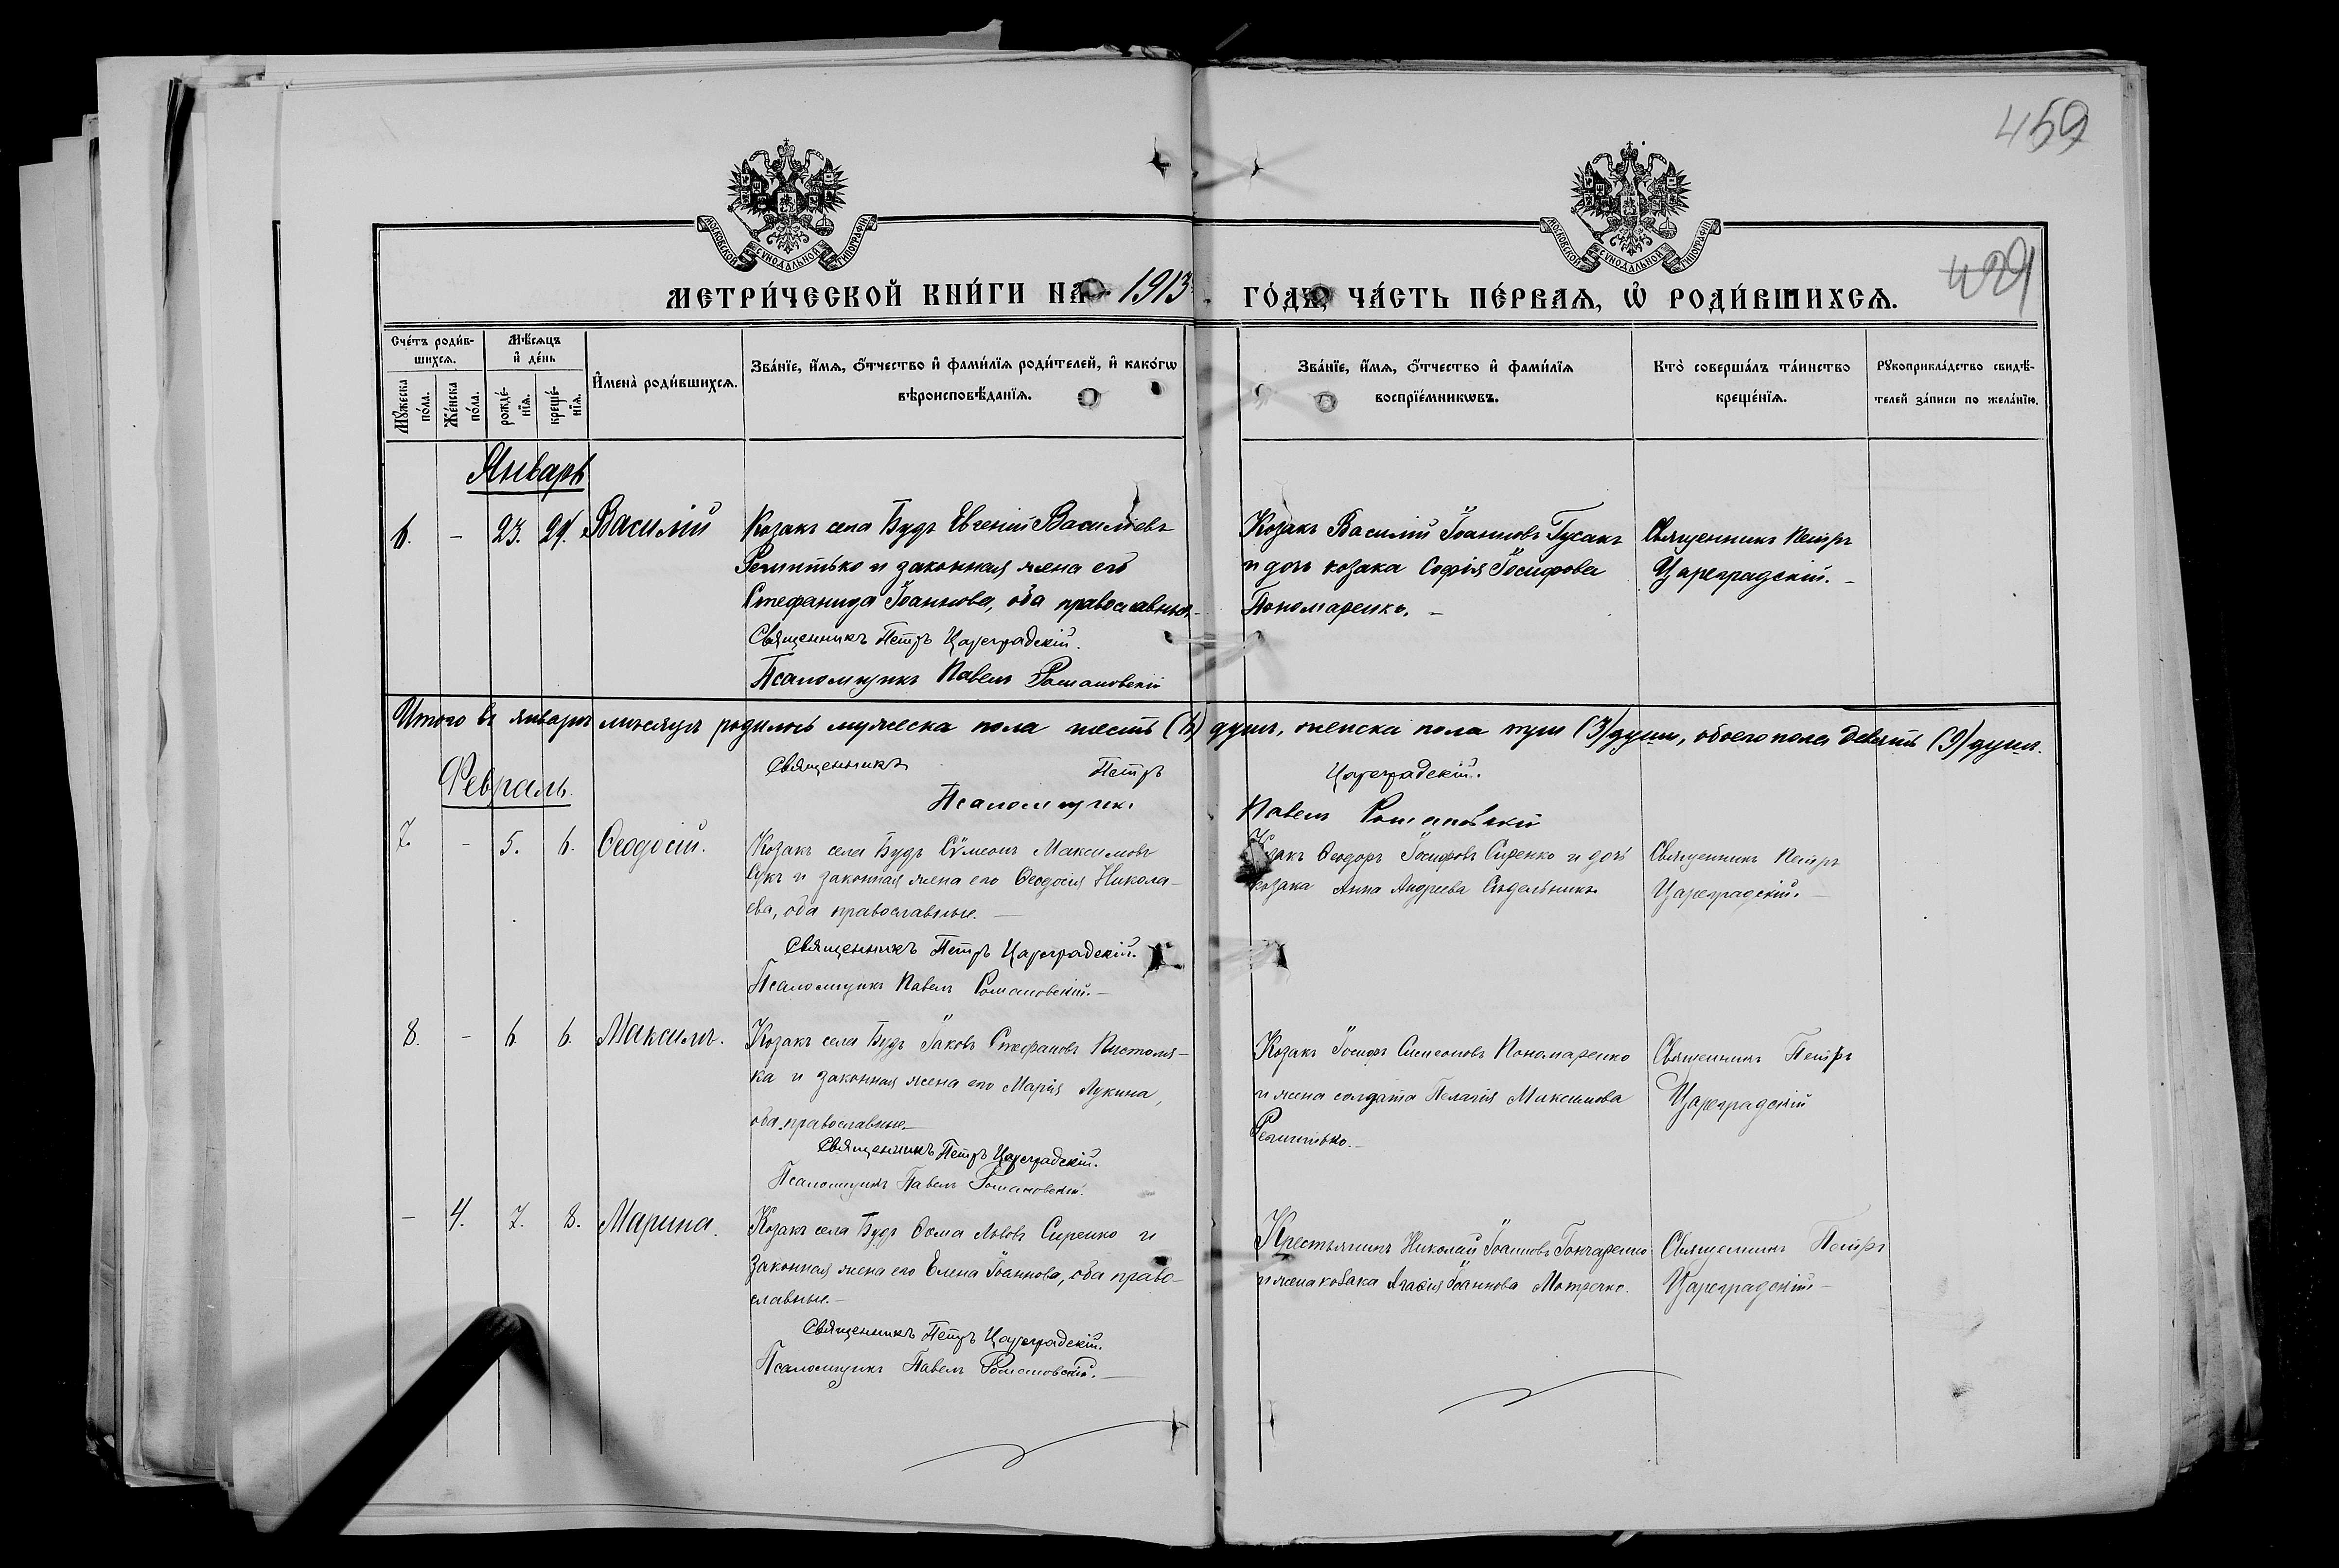 459
429
МОСКОВСКОЙ СѴНОДАЛЬНОЙ ТИПОГРАФІИ
МОСКОВСКОЙ СѴНОДАЛЬНОЙ ТИПОГРАФІИ
МЕТРИ́ЧЕСКОЙ КНИ́ГИ НА 1913 ГО́ДЪ, ЧА́СТЬ ПЕ́РВАЯ, Ѡ҆ РОДИ́ВШИХСЯ.
Сче́тъ роди́в-
шихся.
Мꙋ́жеска по́ла.
Же́нска по́ла.
Мѣ́сяцъ
и҆ де́нь
рожде́-
нїя.
креще́-
нїя.
И҆мена̀ роди́вшихся.
Зва́нїе, и҆́мя, ѻ҆́тчество и҆ фами́лїя роди́телей, и҆ како́гѡ
вѣроисповѣ́данїя.
Зва́нїе, и҆́мя, ѻ҆́тчество и҆ фами́лїя
воспрїе́мникѡвъ.
Кто̀ соверша́лъ та́инство
креще́нїя.
Рꙋкоприкла́дство свидѣ́-
телей за́писи по жела́нїю.
Январь
6. - 23. 24. Василій
Козакъ села Будъ Евгеній Васильевъ
Решитько и законная жена его
Стефанида Іоаннова, оба православные.
Священникъ Петръ Цареградскій.
Псаломщикъ Павелъ Романовскій
Козакъ Василій Іоанновъ Гусакъ
и дочь козака Софія Іосифова
Пономаренко. -
Священникъ Петръ
Цареградскій. -
Итого въ январѣ мѣсяцѣ родилось мужеска пола шесть (6) душъ, женска пола три (3) души, обоего пола девять (9) душъ.
Священникъ Петръ Цареградскій.
Псаломщикъ Павелъ Романовскій
Февраль.
7. - 5. 6. Ѳеодосій.
Козакъ села Будъ Сѵмеонъ Максимовъ
Сукъ и законная жена его Ѳеодосія Никола-
ева, оба православные. -
Священникъ Петръ Цареградскій.
Псаломщикъ Павелъ Романовскій. -
Козакъ Ѳеодоръ Іосифовъ Сиренко и дочь
козака Анна Андреева Сидельникъ
Священникъ Петръ
Цареградскій. -
8. - 6 6. Максимъ.
Козакъ села Будъ Іаковъ Стефановъ
ка и законная жена его Марія Лукина,
оба православные. -
Священникъ Петръ Цареградскій.
Псаломщикъ Павелъ Романовскій.
Козакъ Іосифъ Симеоновъ Пономаренко
и жена солдата Пелагія Максимова
Решитько. -
Священникъ Петръ
Цареградскій
- 4. 7. 8. Марина.
Козакъ села Будъ Ѳома Львовъ Сиренко и
законная жена его Елена Іоаннова, оба право-
славные. -
Священникъ Петръ Цареградскій.
Псаломщикъ Павелъ Романовскій. -
Крестьянинъ Николай Іоанновъ Гончаренко
и жена козака Агафія Іоаннова Мотречко.
Священникъ Петръ
Цареградскій -